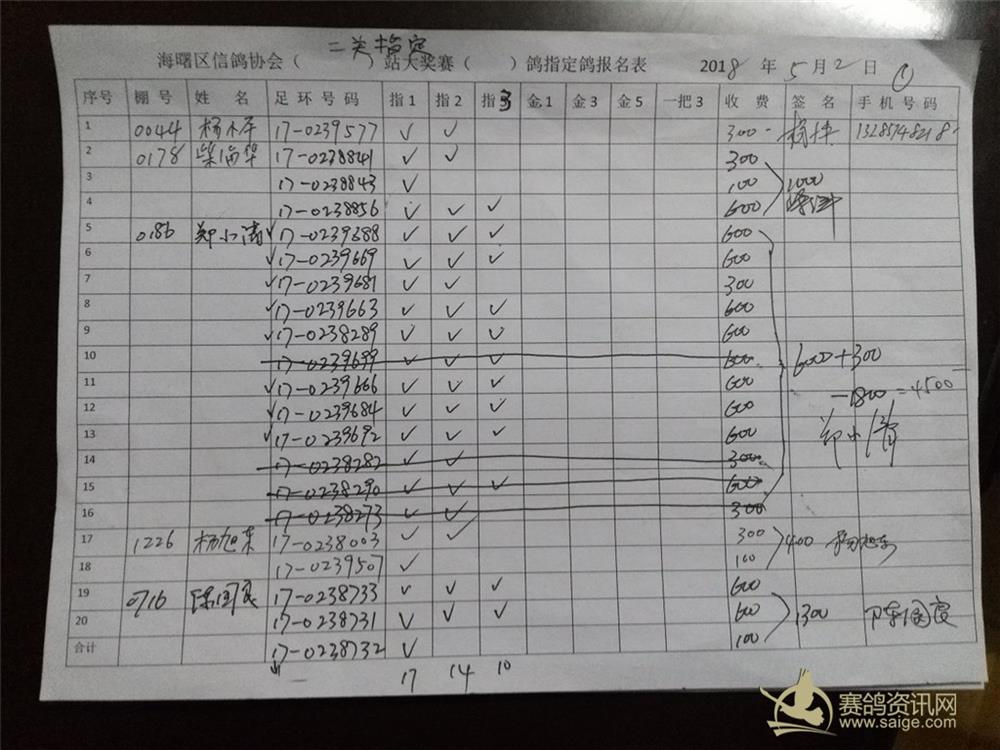 二关指定
海曙区信鸽协会（ ）站大奖赛（ ）鸽指定鸽报名表 2018 年 5 月 2 日 (1)
序号 棚号 姓名 足环号码 指1 指2 指3 金1 金3 金5 一把3 收费 签名 手机号码
1 0044 17-0239577 ✓ ✓ 300-
2 0178 柴海华 17-0238841 ✓ ✓ 300
3 17-0238843 ✓ 100 1000
4 17-0238856 ✓ ✓ ✓ 600
5 0186 郑小清 ✓17-0239688 ✓ ✓ ✓ 600
6 ✓17-0239669 ✓ ✓ ✓ 600
7 ✓17-0239681 ✓ ✓ 300
8 ✓17-0239663 ✓ ✓ ✓ 600
9 ✓17-0238289 ✓ ✓ ✓ 600
10 17-0239699 ✓ ✓ ✓ 600 6000+300
11 ✓17-0239666 ✓ ✓ ✓ 600 -1800=4500
12 ✓17-0239684 ✓ ✓ ✓ 600
13 ✓17-0239692 ✓ ✓ ✓ 600 郑小清
14 17-0238282 ✓ ✓ 300
15 17-0238290 ✓ ✓ ✓ 600
16 17-0238273 ✓ ✓ 300
17 1226 杨旭东 17-0238003 ✓ ✓ 300 400 杨旭东
18 17-0239507 ✓ 100
19 0716 陈国良 17-0238733 ✓ ✓ ✓ 600
20 17-0238731 ✓ ✓ ✓ 600 1300 陈国良
合计 17-0238732 ✓ 100
17 14 10
赛鸽资讯网
www.saige.com